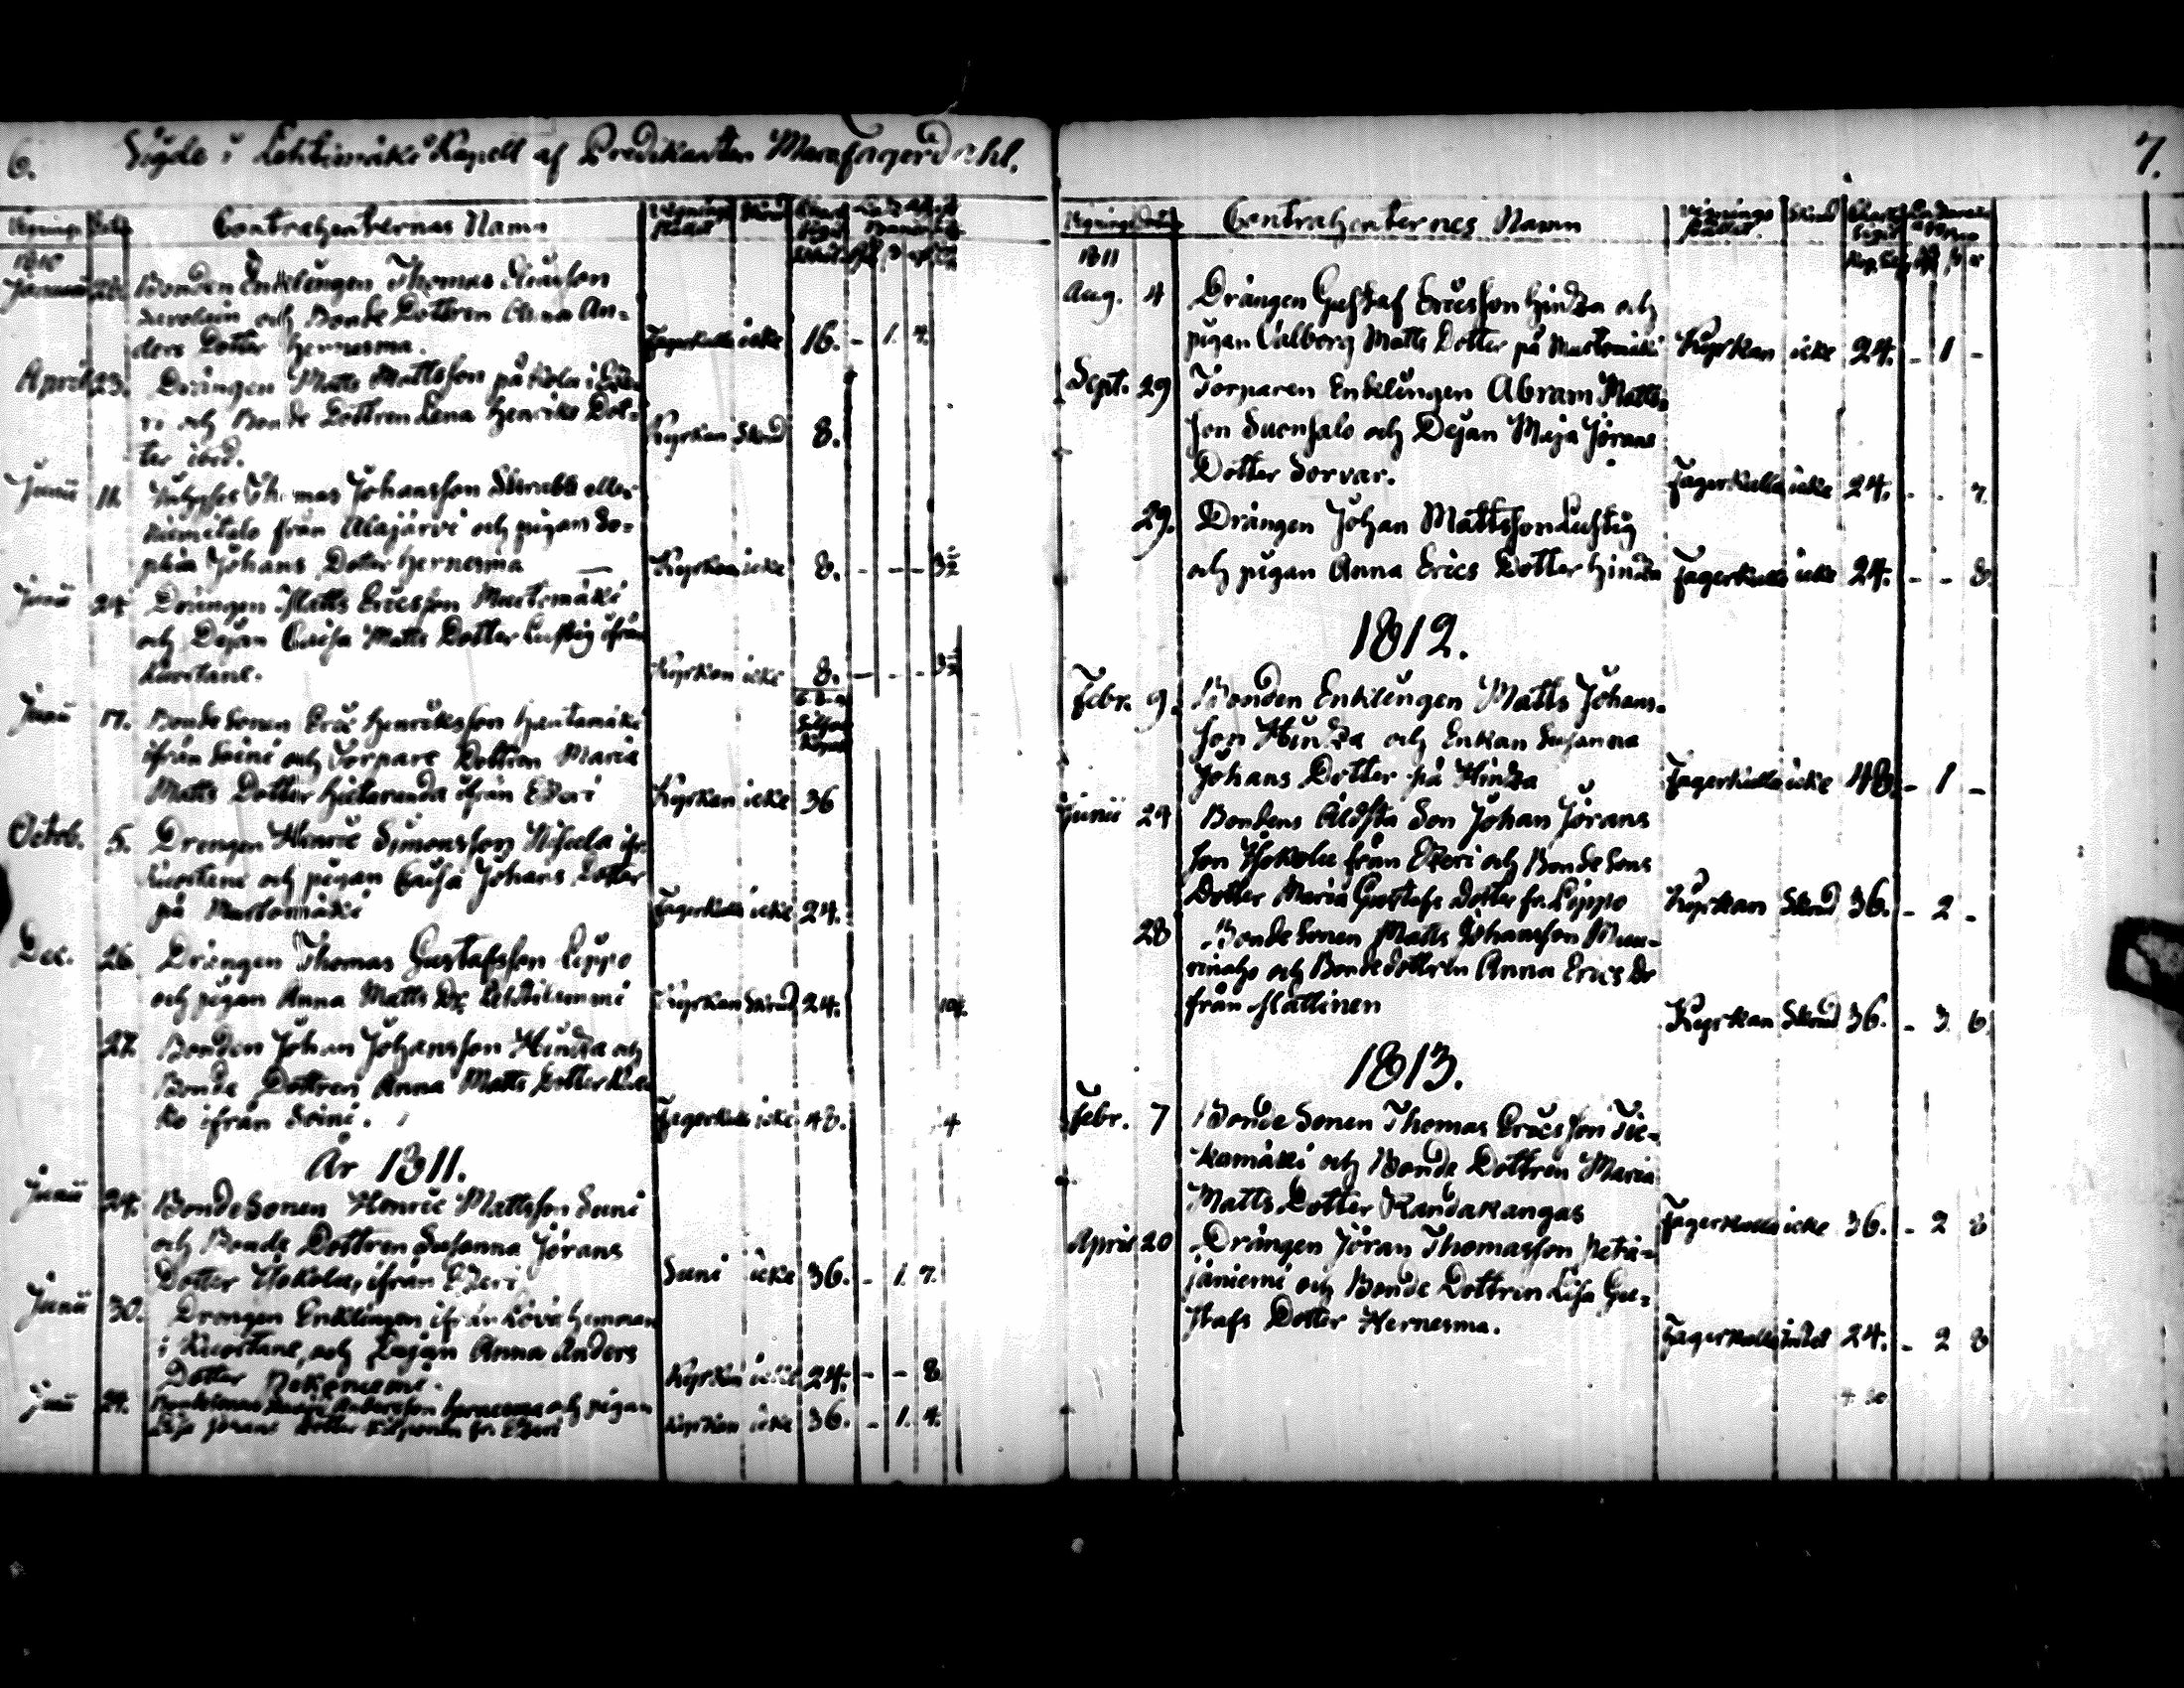 6. Vigde i Lehtimäki Kapell af Predikanten Fagerdahl.
Contrahenternas Namn
1810
Januarii 28. Bonden Enklingen Thomas
och Bonde Dottren Anna An=
ders Dotter Hernesma. Fagerkulla icke 16. - 1. 4.
April 23. Drängen Matts Mattsson på
och Bonde Dottren Lena Henriks Dot=
ter ibid. Kyrkan Skrud 8.
Junii 11. Thomas Johansson eller
från Alajärvi och pigan So=
phia Johans Dotter Hernesma Kyrkan icke 8. - - - 3½
Junii 24 Drängen Matts Ericsson Martomäki
och Dejan Caisa Matts Dotter Lustig ifrån
Kuortane. Kyrkan icke 8. - - - 3½
Junii 17. Bonde Sonen Eric Henriksson Hautamäki
ifrån Soini och Torpare Dottren Maria
Matts Dotter Hietaranda ifrån Etzeri Kyrkan icke 36
Octob. 5. Drengen Henric Simonsson ifr.
Kuortane och pigan Caisa Johans Dotter
på Martomäki Fagerkulla icke 24.
Dec. 26. Drängen Thomas Gustafsson Lippo
och pigan Anna Matts Dr Lehtiniemi Kyrkan Skrud 24. 104.
27. Bonden Johan Johansson Hindza och
Bonde Dottren Anna Matts Dotter
ko ifrån Soini. Fagerkulla icke 48. 4
År 1811.
Junii 24. Bonde Sonen Henric Mattsson Suni
och Bonde Dottren Susanna Jörans
Dotter Hokola, ifrån Etzeri Suni icke 36. - 1. 7.
Junii 30. Drengen Enklingen ifrån Hemman
i Kuortane, och Dejan Anna Anders
Dotter Kyrkan icke 24. - - 8
Junii 24. Andersson Hernesma och pigan
Johans Dotter fr. Etzeri Kyrkan icke 36. - 1. 4.
7.
Contrahenternes Namn Vignings stället Skrud
1811
Aug. 4 Drängen Gustaf Ericsson Hindza och
pigan Valborg Matts Dotter på Martomäki Kyrkan icke 24. - 1 -
Sept. 29 Torparen Enklingen Abram Matts=
son Suensalo och Dejan Maja Jörans
Dotter Sorvar. Fagerkulla icke 24. - . 7.
29. Drängen Johan Mattsson Lustig
och pigan Anna Erics Dotter Hindza Fagerkulla icke 24. - - 8
1812.
Febr. 9. Bonden Enklingen Matts Johans=
son Hindza och Enkan Susanna
Johans Dotter på Hindza Fagerkulla icke 48. - 1 -
Junii 24 Bondens Äldsta Son Johan Jörans
son Hokola från Etzeri och Bonde Sons
Dotter Maria Gustafs Dotter fr. Lippo Kyrkan Skrud 36. - 2 -
28 Bonde Sonen Matts Johansson
och Bondedottren Anna Erics Dr
från Mattinen Kyrkan Skrud 36. - 3 6.
1813.
Febr. 7 Bonde Sonen Thomas Ericsson Tie=
kamäki och Bonde Dottren Maria
Matts Dotter Randakangas Fagerkulla icke 36. - 2 8
April 20 Drängen Jöran Thomasson Petä=
jäniemi och Bonde Dottren Lisa Gu=
stafs Dotter Hernesma. Fagerkulla 24. - 2 8